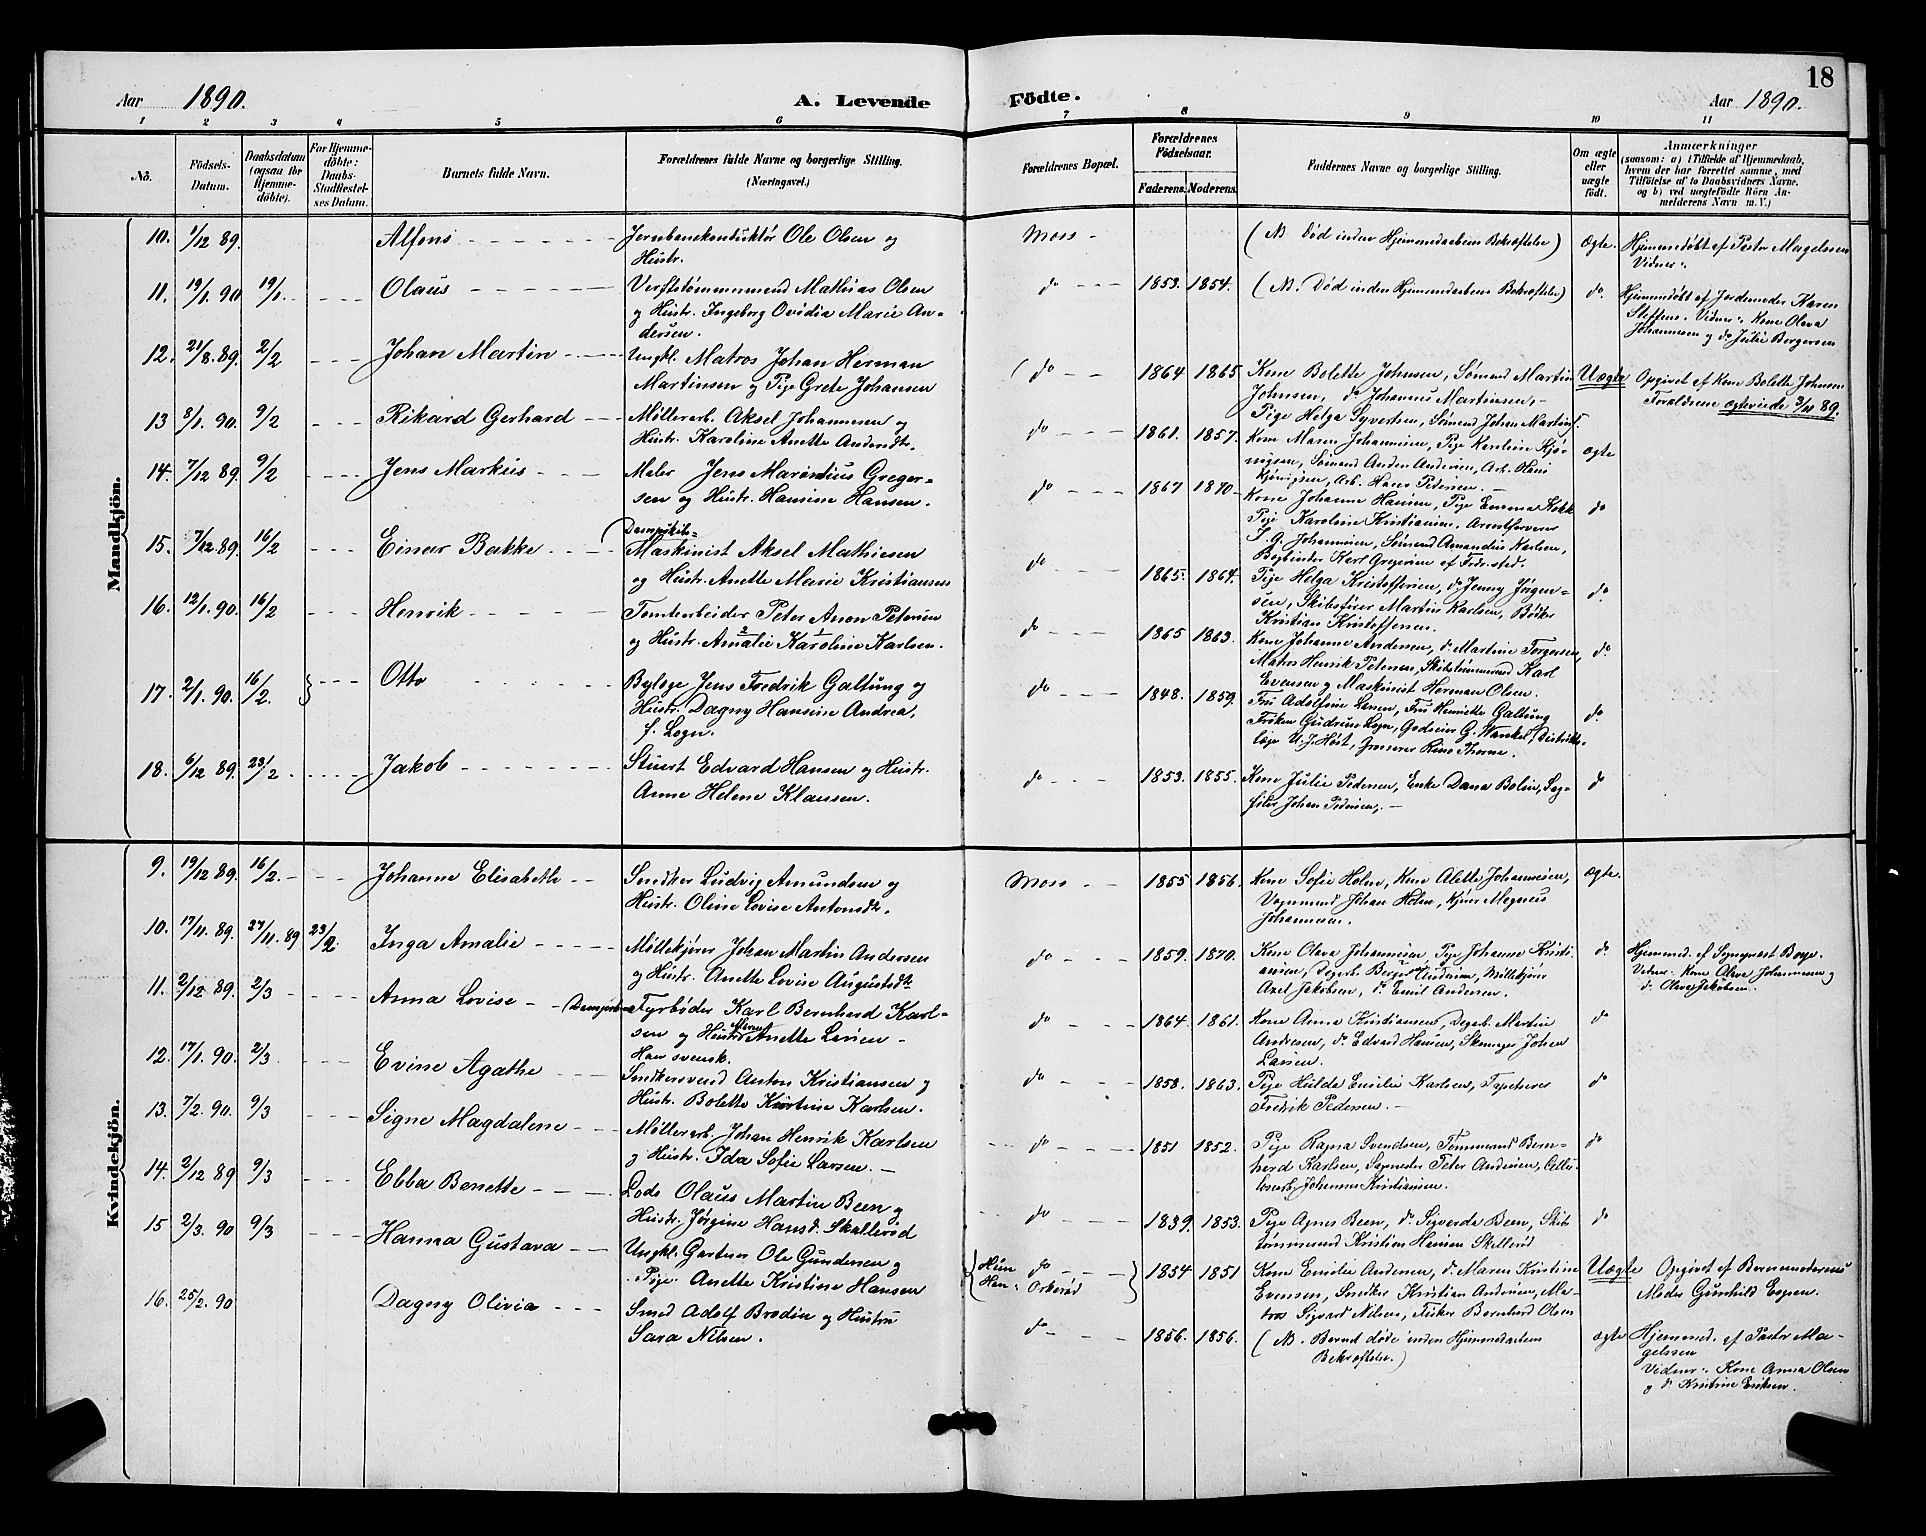 18
Aar 1890.
A. Levende Födte.
Aar 1890.
1 2 3 4 5 6 7 8 9 10 11
Nò.
Födsels-Datum.
Daabsdatum (ogsaa for Hjemme-döbte).
For Hjemme-döbte: Daabs-Stadfæstel-ses Datum.
Barnets fulde Navn.
Forældrenes fulde Navne og borgerlige Stilling. (Næringsvei.)
Forældrenes Bopæl.
Forældrenes Födselsaar.
Faderens. Moderens.
Faddernes Navne og borgerlige Stilling.
Om ægte eller uægte födt.
Anmærkninger
(saasom: a) i Tilfælde af Hjemmedaab, hvem der har forrettet samme, med Tilföielse af to Daabsvidners Navne, og b) ved uægtefödte Börn An-melderens Navn m. V.)
Mandkjön.
10. 1/12 89. Alfons Jernbanekonduktør Ole Olsen og
Hustr.
Moss (NB. Død inden Hjemmedaabens Bekræftelse) Ægte. Hjemmedøbt af Pastor Magelssen
Vidner:
11. 19/1. 90 19/1. Olaus Verftstømmermand Mathias Olsen
og Hustr. Ingeborg Ovidia Marie An-
dersen.
do 1853. 1854. (NB. Død inden Hjemmedaabens Bekræftelse) do. Hjemmedøbt af Jordemoder Karen
Steffens. Vidner: Kone Olava
Johannesen og do Julie Borgersen
12. 21/8. 89. 2/2 Johan Martin Ungkl. Matros Johan Herman
Martinsen og Pige Grete Johansen
do 1864 1865. Kone Bolette Johnsen, Sømand Martin
Johnsen, do Johannes Martinsen,
Pige Helga Syvertsen, Sømand Johan Martins.
Uægte Opgivet af Kone Bolette Johnsen
Forældrene ægteviede 3/11 89.
13 8/1. 90. 9/2 Rikard Gerhard Møllerarb. Aksel Johannesen og
Hustr. Karoline Anette Andersdt.
do 1861. 1857. Kone Maren Johannesen, Pige
Sømand Anders Andersen, Arb. Hans
Arb. Hans Pedersen. ægte
14. 7/12 89. 9/2 Jens Markus Maler Jens Marenius Greger-
sen og Hustr. Hansine Hansen.
do 1867 1870 Kone Johanne Hansen, Pige Emma
Pige Karoline Kristiansen,
J. G. Johannesen, Sømand Amandus Karlsen,
Bogbinder Karl Gregersen af Fredr.sted. do
15. 7/12. 89. 16/2 Einar Bakke
Maskinist Aksel Mathiesen
og Hustr. Anette Marie Kristiansen
do 1865. 1864. Pige Helga Kristoffersen, do Jenny Jørgen-
sen, Skibsfører Martin Karlsen, Bødker
Kristian Kristoffersen. do
16. 12/1. 90. 16/2 Henrik Tomtearbeider Peter Anton Petersen
og Hustr. Amalie Karoline Karlsen.
do 1865 1863. Kone Johanne Andersen, do Martine Torgersen,
Matros Henrik Petersen, Skibstømmermand Karl
Evensen og Maskinist Herman Olsen. do
17. 2/1. 90. 16/2. Otto Bylæge Jens Fredrik Galtung og
Hustr. Dagny Hansine Andrea,
f. Logn.
do 1848. 1859. Fru Adolfine Larsen, Fru Henriette Galtung
Frøken Gudrun Logn, Godseier G. Wankel, Distrikts-
læge U. J. Høst, Grosserer Thorne. do
18. 6/12 89. 23/2 Jakob Stuert Edvard Hansen og Hustr.
Anne Helene Klausen.
do 1853. 1855. Kone Julie Pedersen, Enke Dana Bolin, Sag-
filer Johan Pedersen. do
Kvindekjön.
9. 19/12 89. 16/2. Johanne Elisabeth Snedker Ludvig Amundsen og
Hustr. Oline Lovise Antonsdt.
Moss 1855 1856. Kone Sofie Holm, Kone Alette Johannesen,
Vognmand Johan Holm, Kjører Magnus
Johannesen. ægte.
10. 17/11. 89. 27/11. 89 23/2. Inga Amalie Møllekjører Johan Martin Andersen
og Hustr. Anette Lovise Augustsdt.
do 1859. 1870. Kone Olava Johannesen, Pige Johanne Kristi-
ansen, Andersen, Møllekjører
Axel Jakobsen, do Emil Andersen. do Hjemmed. af Sogneprest Borge.
Vidner: Kone Olava Johannesen og
do Olava Jakobsen.
11. 2/12 89. 2/3 Anna Lovise Fyrbøder Karl Bernhard Karl-
sen og Hustr. Anette Larsen
Han svensk.
do 1864. 1861. Kone Anna Kristiansen, Dagarb. Martin
Andresen, do Edvard Hansen, Johan
Larsen. do
12. 17/1. 90. 2/3 Evine Agathe Snedkersvend Anton Kristiansen og
Hustr. Bolette Kristine Karlsen.
do 1858. 1863. Pige Hulda Emilie Karlsen, Tapetserer
Fredrik Pedersen. do
13. 7/2. 90. 9/3 Signe Magdalene Møllerarb. Johan Henrik Karlsen
og Hustr. Ida Sofie Larsen.
do 1851 1852. Pige Ragna Svendsen, Tømmermand Bern-
hard Karlsen, Peter Andersen, Cellu-
losearb. Johannes Kristiansen. do
14. 2/12 89 9/3 Ebba Benette Lods Olaus Martin Been og
Hustr. Jørgine Hansd. Skallerød
do 1839. 1853. Pige Agnes Been, do Sigverda Been, Skibs-
tømmermand Kristian Hansen Skillerød do
15 2/3. 90 9/3 Hanna Gustava Ungkl. Gartner Ole Gundersen og
Pige Anette Kristine Hansen
Hun do
Han: Orkerød 1854 1851 Kone Emilie Andersen, do Maren Kristine
Evensen, Snedker Kristian Andersen, Ma-
tros Sigvart Nilsen, Fisker Bernhard Olsen
Uægte Opgivet af Barnemoderens
Moder Gunhild Espen.
16. 25/2. 90 Dagny Olivia Smed Adolf Brodin og Hustru
Sara Nilsen.
do 1856. 1856. (NB. Barnet døde inden Hjemmedaabens
Bekræftelse.) ægte Hjemmed. af Pastor Ma-
gelssen
Vidner: Kone Anna Olsen
og do Kristine Eriksen.